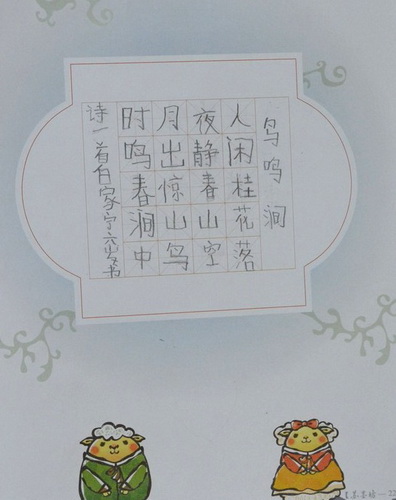 鸟鸣涧
人闲桂花落
夜静春山空
月出惊山鸟
时鸣春涧中
诗一首白家宁六岁书